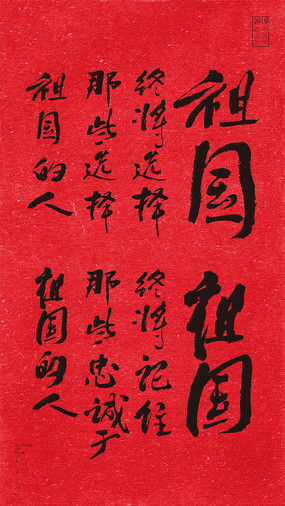 2019
祖国
终将选择
那些选择
祖国的人
祖国
终将记住
那些忠诚于
祖国的人